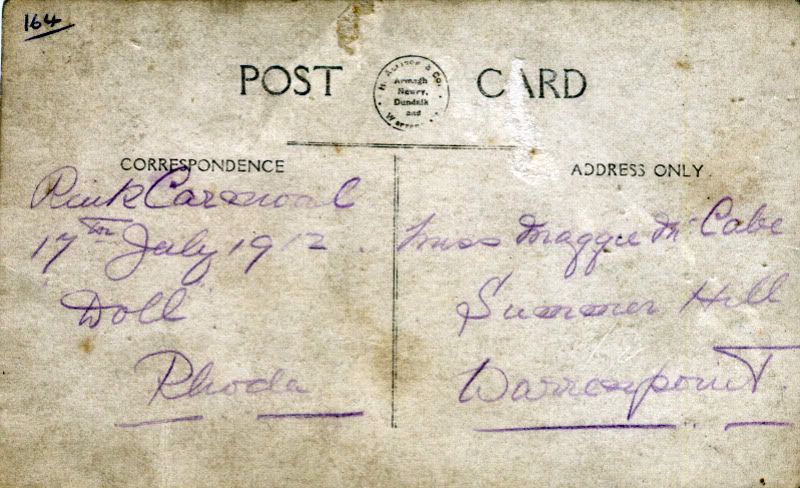 164
POST CARD
H. Allison & Co.
Armagh
Newry,
Dundalk
and
Warren
CORRESPONDENCE
ADDRESS ONLY.
Rink Carnival
17th July 1912.
"Doll"
Rhoda
Miss Maggie McCabe
Summer Hill
Warrenpoint.